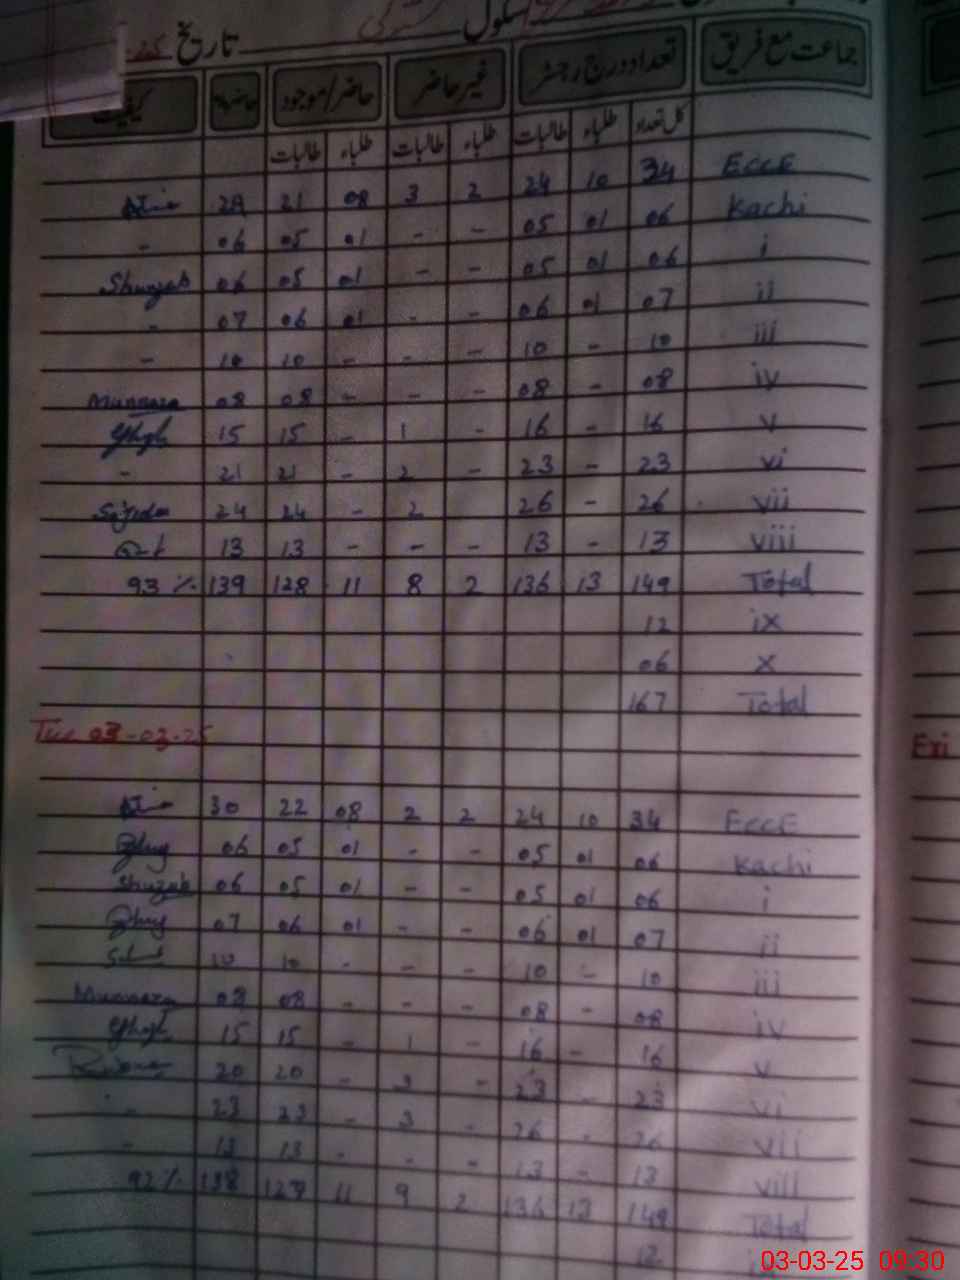 سکول تاریخ
جماعت مع فریق تعداد درج رجسٹر غیر حاضر حاضر/موجود حاضر% کیفیت
کل تعداد طلباء طالبات طلباء طالبات طلباء طالبات
ECCE 34 10 24 2 3 08 21 29
Kachi 06 01 05 - - 01 05 06 -
i 06 01 05 - - 01 05 06 Shunzab
ii 07 01 06 - - 01 06 07 -
iii 10 - 10 - - - 10 10 -
iv 08 - 08 - - - 08 08 Munnaza
v 16 - 16 - 1 - 15 15
vi 23 - 23 - 2 - 21 21 -
vii 26 - 26 2 - 24 24 Sajida
viii 13 - 13 - - - 13 13
Total 149 13 136 2 8 11 128 139 93 %
ix 12
x 06
Total 167
Tue 03-03-25
ECCE 34 10 24 2 2 08 22 30
Kachi 06 01 05 - - 01 05 06
i 06 01 05 - - 01 05 06 Shunzab
ii 07 01 06 - - 01 06 07
iii 10 - 10 - - - 10 10
iv 08 - 08 - - - 08 08 Munnaza
v 16 - 16 - 1 - 15 15
vi 23 - 23 - 3 - 20 20
vii 26 - 26 - 3 - 23 23 -
viii 13 - 13 - - - 13 13 -
Total 149 13 136 2 9 11 127 138 92%
12
03-03-25 09:30